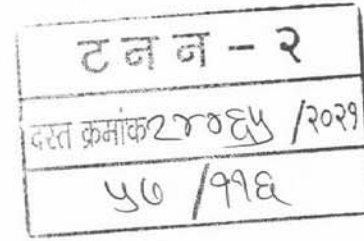 ट न न - २
दस्त क्रमांक २४०६५ /२०२१
५७ /११६